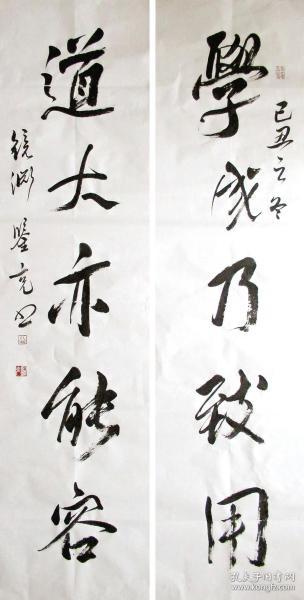 學成乃致用
己丑之冬
道大亦能容
鏡淵 鑒亮书
孔夫子旧书网